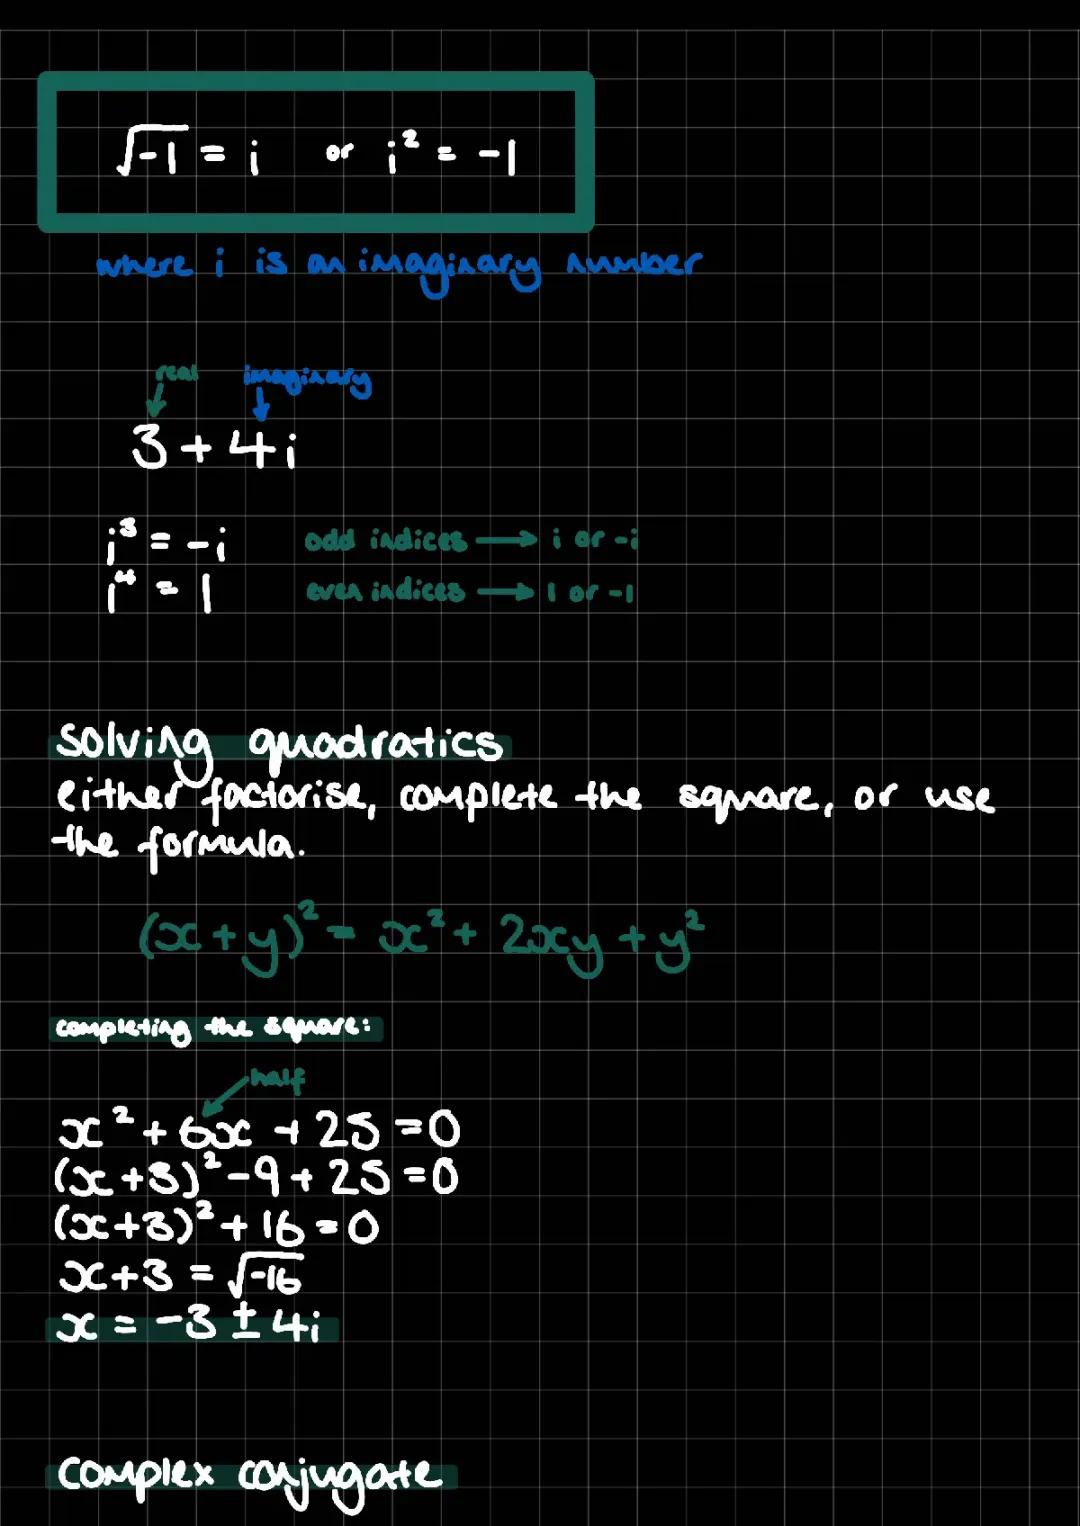 √-1 = i or i² = -1
where i is an imaginary number
real imaginary
3 + 4i
i³ = -i odd indices → i or -i
i⁴ = 1 even indices → 1 or -1
solving quadratics
either factorise, complete the square, or use
the formula.
(x+y)² = x² + 2xy + y²
completing the square:
half
x² + 6x + 25 = 0
(x+3)² - 9 + 25 = 0
(x+3)² + 16 = 0
x+3 = √-16
x = -3 ± 4i
complex conjugate